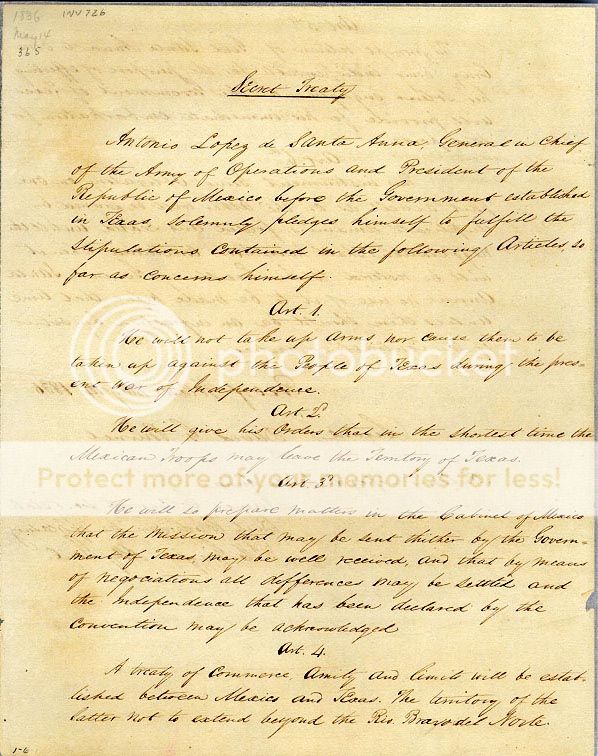 1836
May 14
365
INV 726
Secret Treaty
Antonio Lopez de Santa Anna, General in Chief
of the Army of Operations and President of the
Republic of Mexico, before the Government established
in Texas, solemnly pledges himself to fulfill the
Stipulations contained in the following Articles, so
far as concerns himself.
Art. 1.
He will not take up Arms, nor cause them to be
taken up against the People of Texas during the pres-
ent War of Independence.
Art. 2d
He will give his Orders that in the shortest time the
Mexican Troops may leave the Territory of Texas.
Protect more of your memories for less!
Art. 3d
He will so prepare matters in the Cabinet of Mexico
that the Mission that may be sent thither by the Govern-
ment of Texas may be well received, and that by means
of negociations all differences may be settled and
the Independence that has been declared by the
Convention may be acknowledged
Art. 4.
A treaty of Commerce, Amity and limits will be estab-
lished between Mexico and Texas. The territory of the
latter not to extend beyond the Rio. Bravo del Norte.
1-6
photobucket